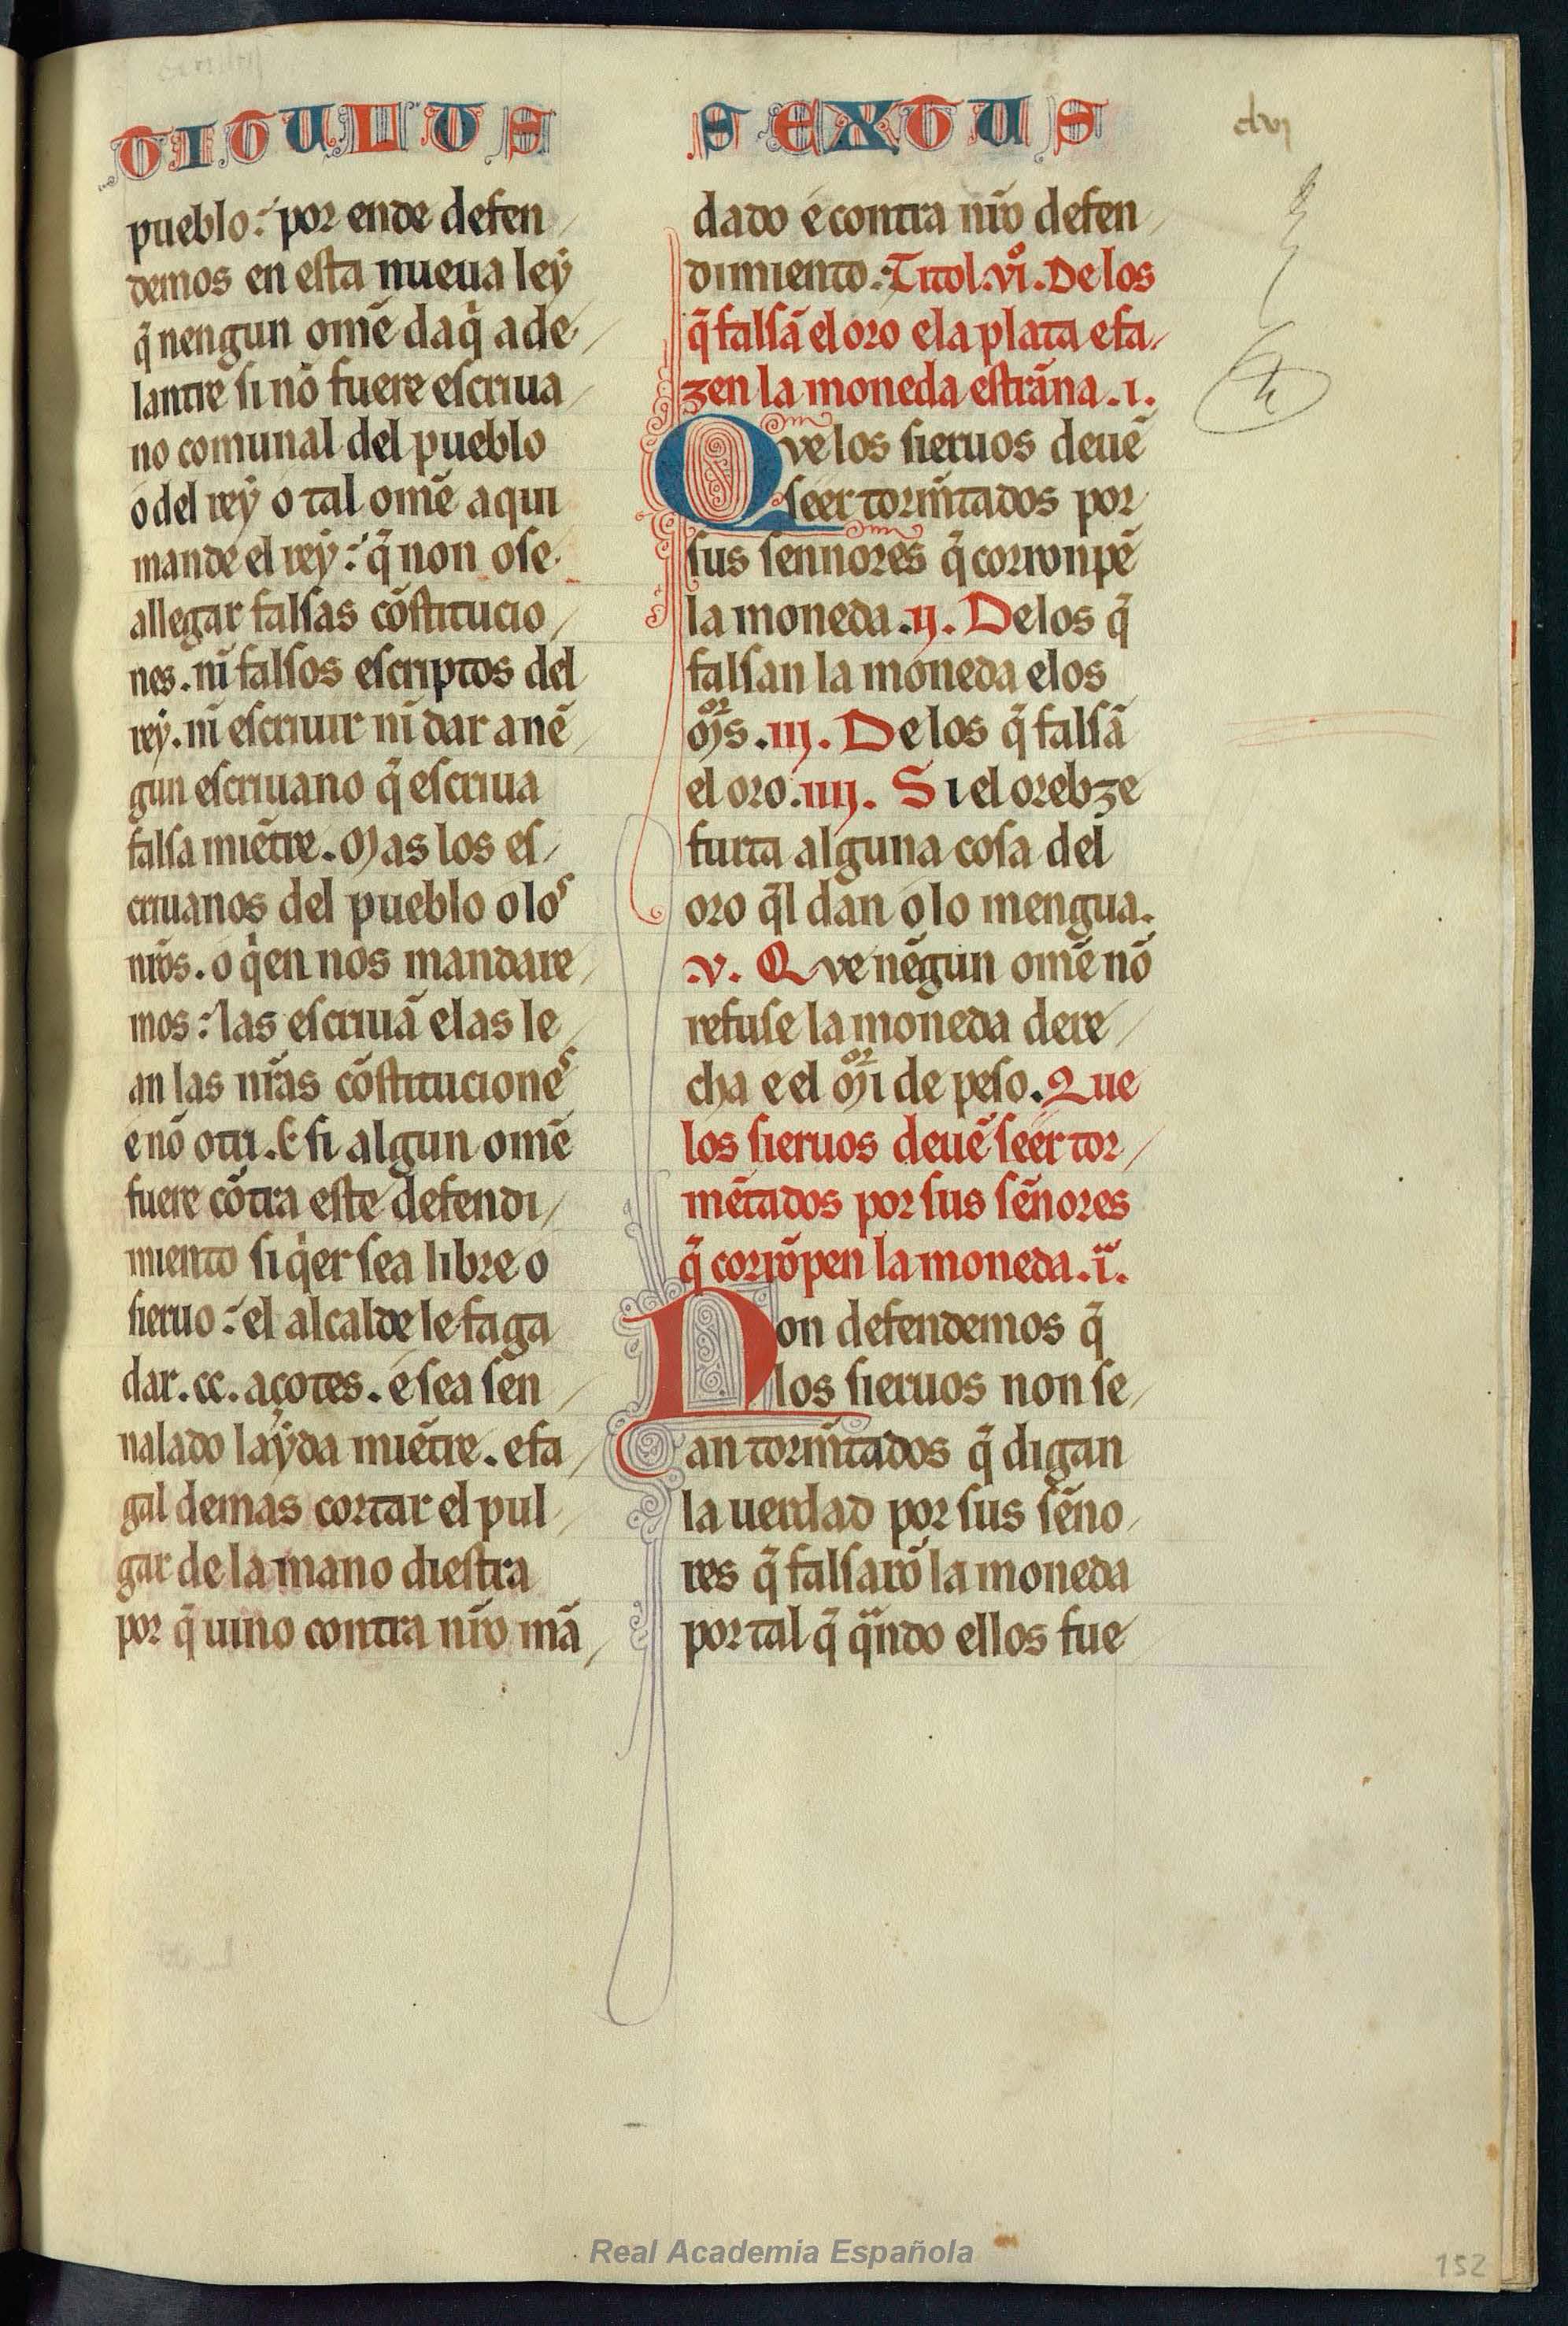 TITULUS SEXTUS
clvi
pueblo: por ende defen
demos en esta nueua ley
q̃ nengun omẽ daq̃ ade
lantre si nõ fuere escriua
no comunal del pueblo
o del rey o tal omẽ aqui
mande el rey: q̃ non ose
allegar falsas cõstitucio
nes. nĩ falsos escriptos del
rey. nĩ escriuir nĩ dar a nẽ
gun escriuano q̃ escriua
falsa miẽtre. Mas los es
criuanos del pueblo o los
nr̃os. o q̃en nos mandare
mos: las escriuã e las le
an las nr̃as cõstituciones
e nõ otri. E si algun omẽ
fuere cõtra este defendi
miento si q̃er sea libre o
sieruo: el alcalde le faga
dar. cc. açotes. e sea sen
nalado layda miẽtre. e fa
gal demas cortar el pul
gar de la mano diestra
por q̃ uino contra nr̃o mã
dado e contra nr̃o defen
dimiento. Titol. vi̊. De los
q̃ falsã el oro e la plata e fa
zen la moneda estrãna. i.
Qve los sieruos deuẽ
seer torm̃tados por
sus sennores q̃ corronpẽ
la moneda. ij. De los q̃
falsan la moneda e los
mors. iij. De los q̃ falsã
el oro. iiij. Si el orebze
furta alguna cosa del
oro q̃l dan o lo mengua.
v. Qve nẽgun omẽ nõ
refuse la moneda dere
cha e el mori de peso. Que
los sieruos deuẽ seer tor
mẽtados por sus sẽnores
q̃ corrõpen la moneda. ia.
Non defendemos q̃
los sieruos non se
an torm̃tados q̃ digan
la uerdad por sus sẽno
res q̃ falsarõ la moneda
por tal q̃ q̃ndo ellos fue
Real Academia Española
152